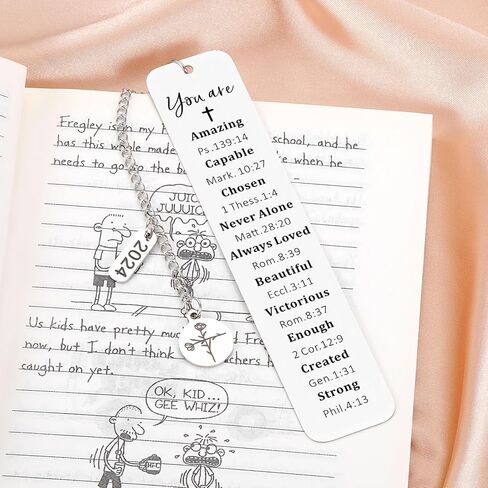 You are
Amazing
Ps.139:14
Capable
Mark. 10:27
Chosen
1 Thess.1:4
Never Alone
Matt.28:20
Always Loved
Rom.8:39
Beautiful
Eccl.3:11
Victorious
Rom.8:37
Enough
2 Cor.12:9
Created
Gen.1:31
Strong
Phil.4:13
2024
Fregley is in my school, and he
has this whole made when he
needs to go to the
JUICE
JUUUICE
Us kids have pretty much Fregley
now, but I don't think teachers
caught on yet.
OK, KID...
GEE WHIZ!